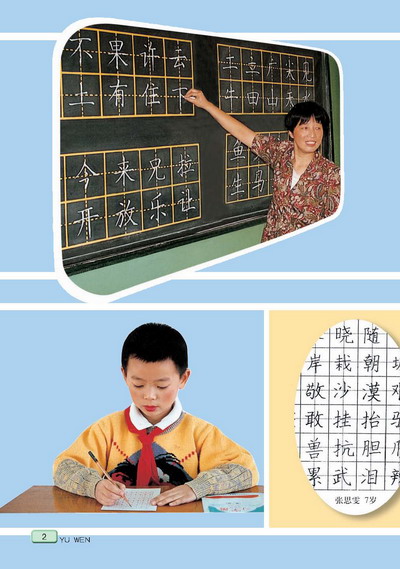 不果许去
上有住下
户尖见
牛田山天
今来
开放乐让
鱼
生马
晓随
岸栽朝
敬沙漠
敢挂抬
兽抗胆
累武泪
张思雯 7岁
2 YU WEN